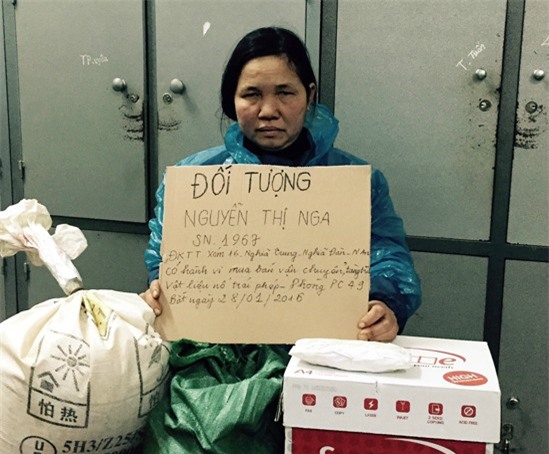 TPcựu
T. Tuấn
ĐỐI TƯỢNG
NGUYỄN THỊ NGA
SN. 1967
ĐKTT. Xóm 16. Nghĩa Trung. Nghĩa Đàn. N.An
có hành vi mua bán vận chuyển, tàng trữ
vật liệu nổ trái phép - Phòng PC 49
Bắt ngày 28/01/2016
怕热
5H3/Z25
HIGH
FAX
COPY
LASER
INKJET
2 SIDED COPYING
ACID FREE